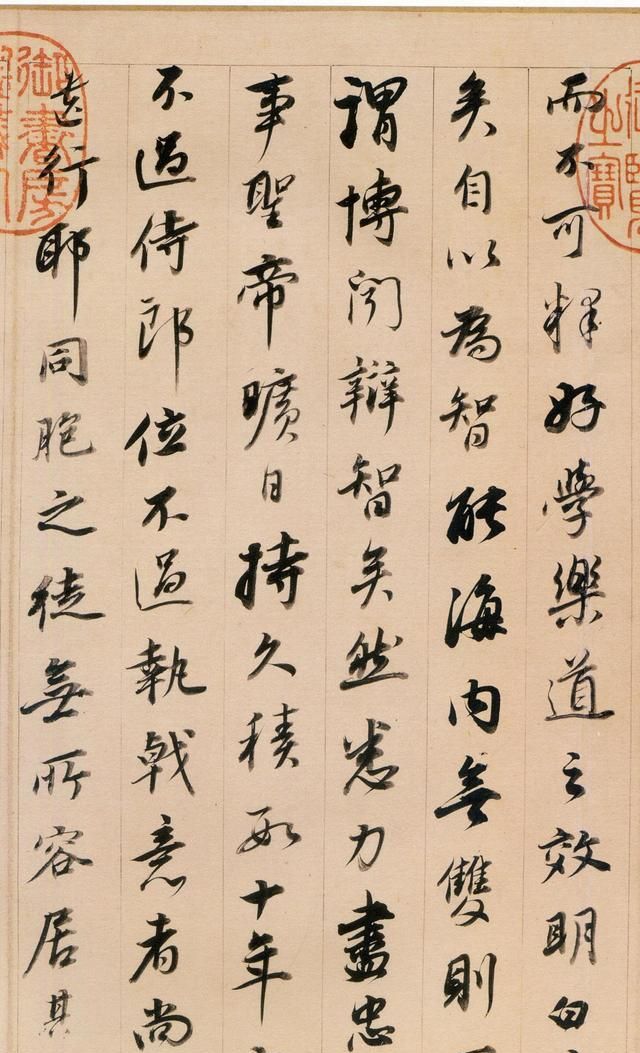 而不可釋好學樂道之效明白
矣自以為智能海內無雙則
謂博聞辯智矣然悉力盡忠
事聖帝曠日持久積數十年
不過侍郎位不過執戟意者尚
遺行耶同胞之徒無所容居其